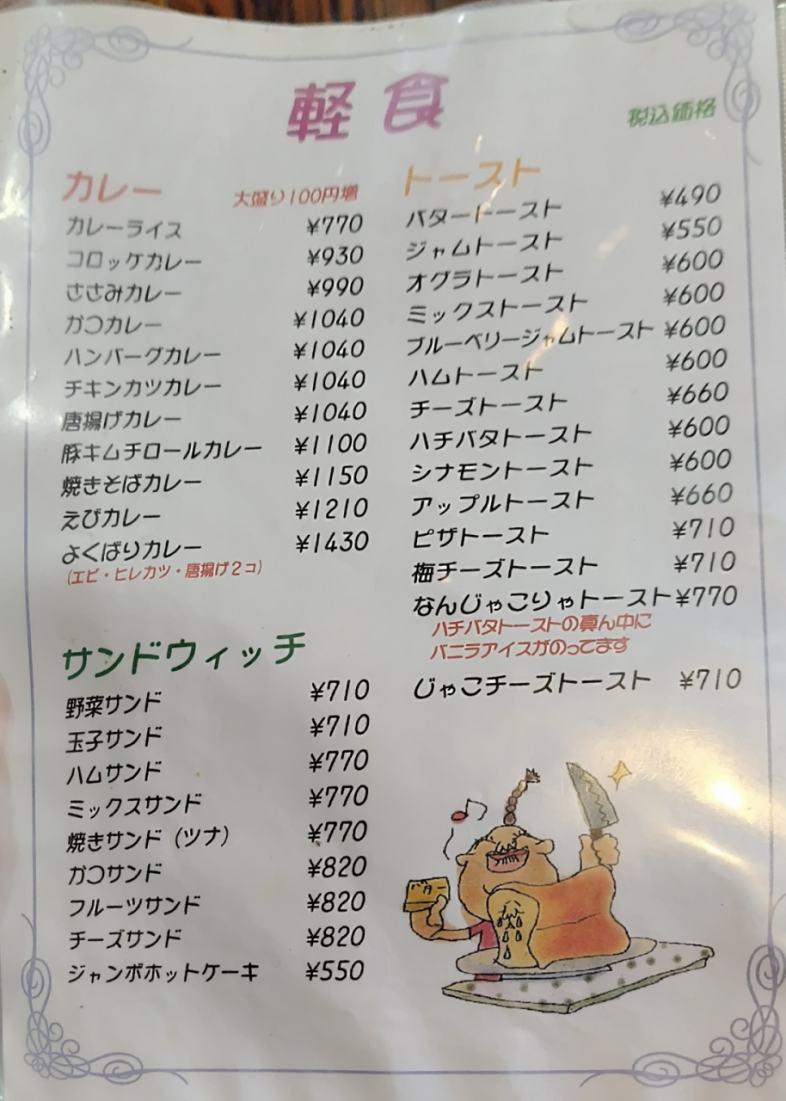 軽食
税込価格
カレー 大盛り100円増
カレーライス ¥770
コロッケカレー ¥930
ささみカレー ¥990
かつカレー ¥1040
ハンバーグカレー ¥1040
チキンカツカレー ¥1040
唐揚げカレー ¥1040
豚キムチロールカレー ¥1100
焼きそばカレー ¥1150
えびカレー ¥1210
よくばりカレー ¥1430
(エビ・ヒレカツ・唐揚げ2コ)
サンドウィッチ
野菜サンド ¥710
玉子サンド ¥710
ハムサンド ¥770
ミックスサンド ¥770
焼きサンド（ツナ） ¥770
かつサンド ¥820
フルーツサンド ¥820
チーズサンド ¥820
ジャンボホットケーキ ¥550
トースト
バタートースト ¥490
ジャムトースト ¥550
オグラトースト ¥600
ミックストースト ¥600
ブルーベリージャムトースト ¥600
ハムトースト ¥600
チーズトースト ¥660
ハチバタトースト ¥600
シナモントースト ¥600
アップルトースト ¥660
ピザトースト ¥710
梅チーズトースト ¥710
なんじゃこりゃトースト ¥770
ハチバタトーストの真ん中に
バニラアイスがのってます
じゃこチーズトースト ¥710
バター